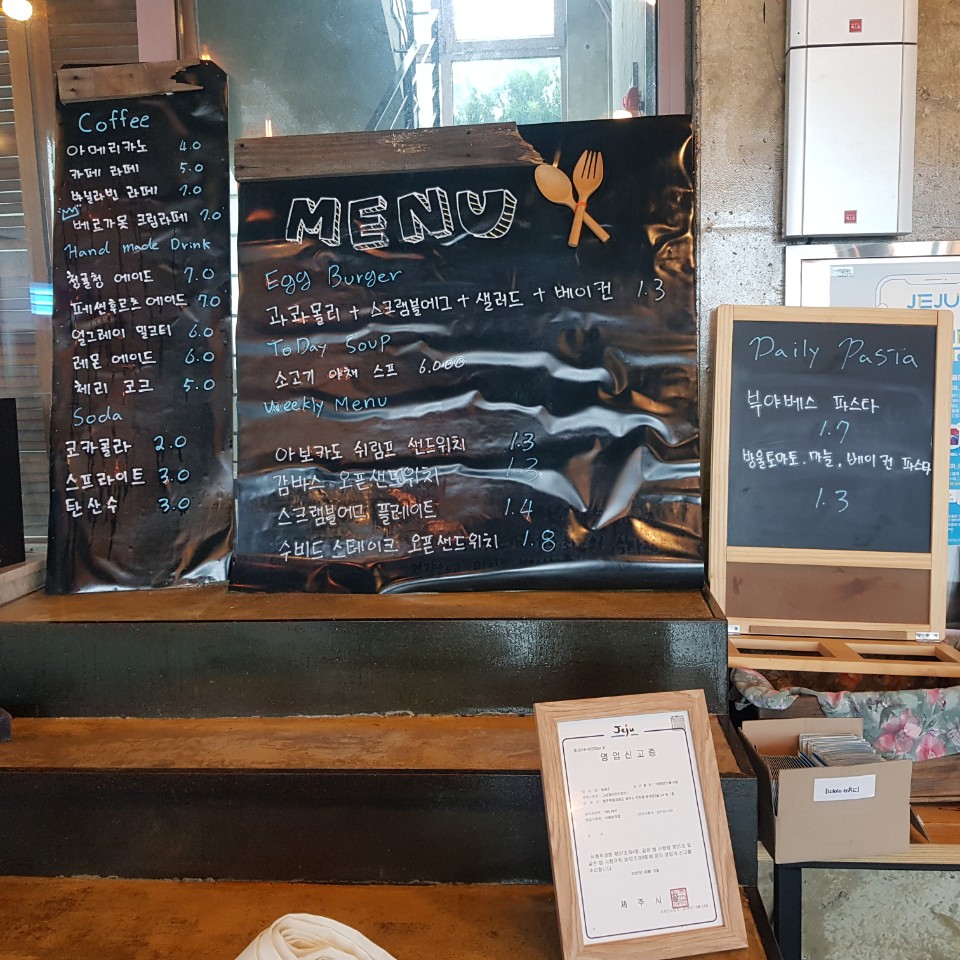 Coffee
아메리카노 4.0
카페 라떼 5.0
바닐라빈 라떼 7.0
베르가못 크림라떼 7.0
Hand made Drink
청귤청 에이드 7.0
패션후르츠 에이드 7.0
얼그레이 밀크티 6.0
레몬 에이드 6.0
체리 코크 5.0
Soda
코카콜라 2.0
스프라이트 3.0
탄산수 3.0
MENU
Egg Burger
과콰몰리 + 스크램블에그 + 샐러드 + 베이컨 1.3
ToDay Soup
소고기 야채 스프 6.000
Weekly Menu
아보카도 쉬림프 샌드위치 1.3
감바스 오픈샌드위치 1.3
스크램블에그 플레이트 1.4
수비드 스테이크 오픈샌드위치 1.8
JEJU
Daily Pasta
부야베스 파스타
1.7
방울토마토. 마늘, 베이컨 파스타
1.3
Jeju
영업신고증
제주시